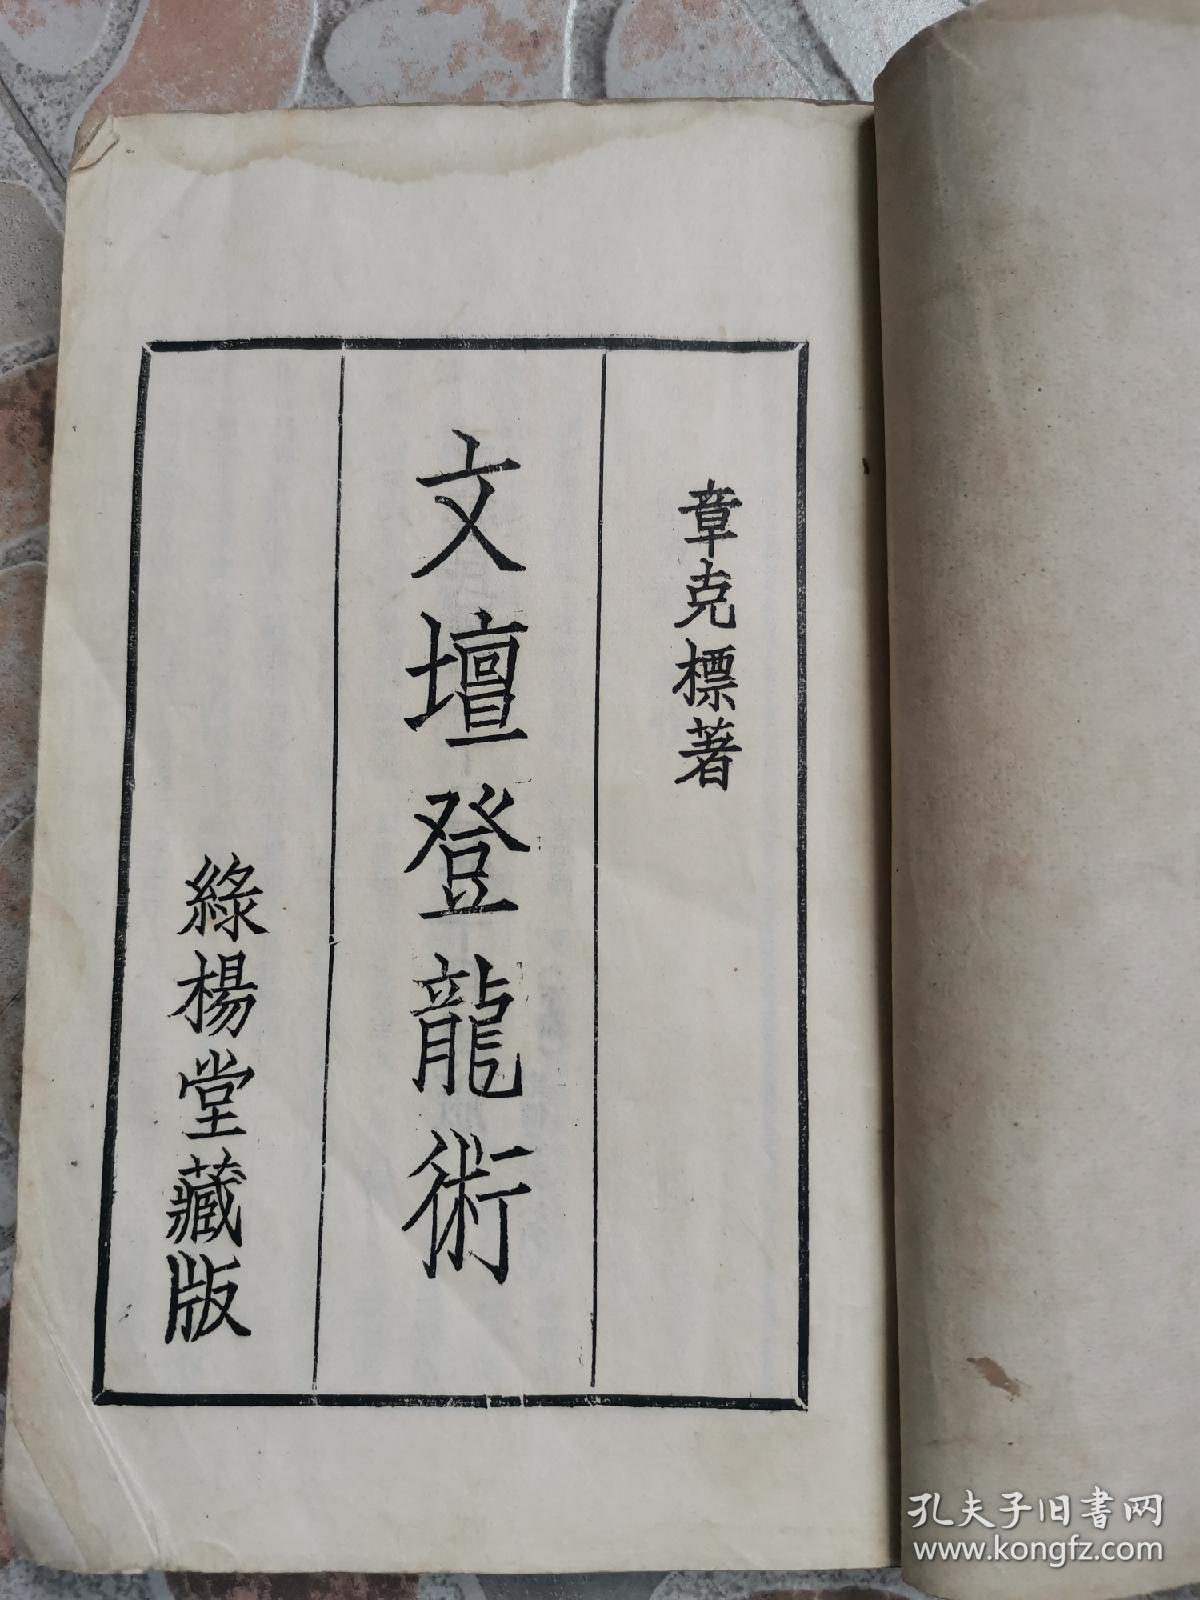 章克標著
文壇登龍術
綠楊堂藏版
孔夫子旧書网
www.kongfz.com